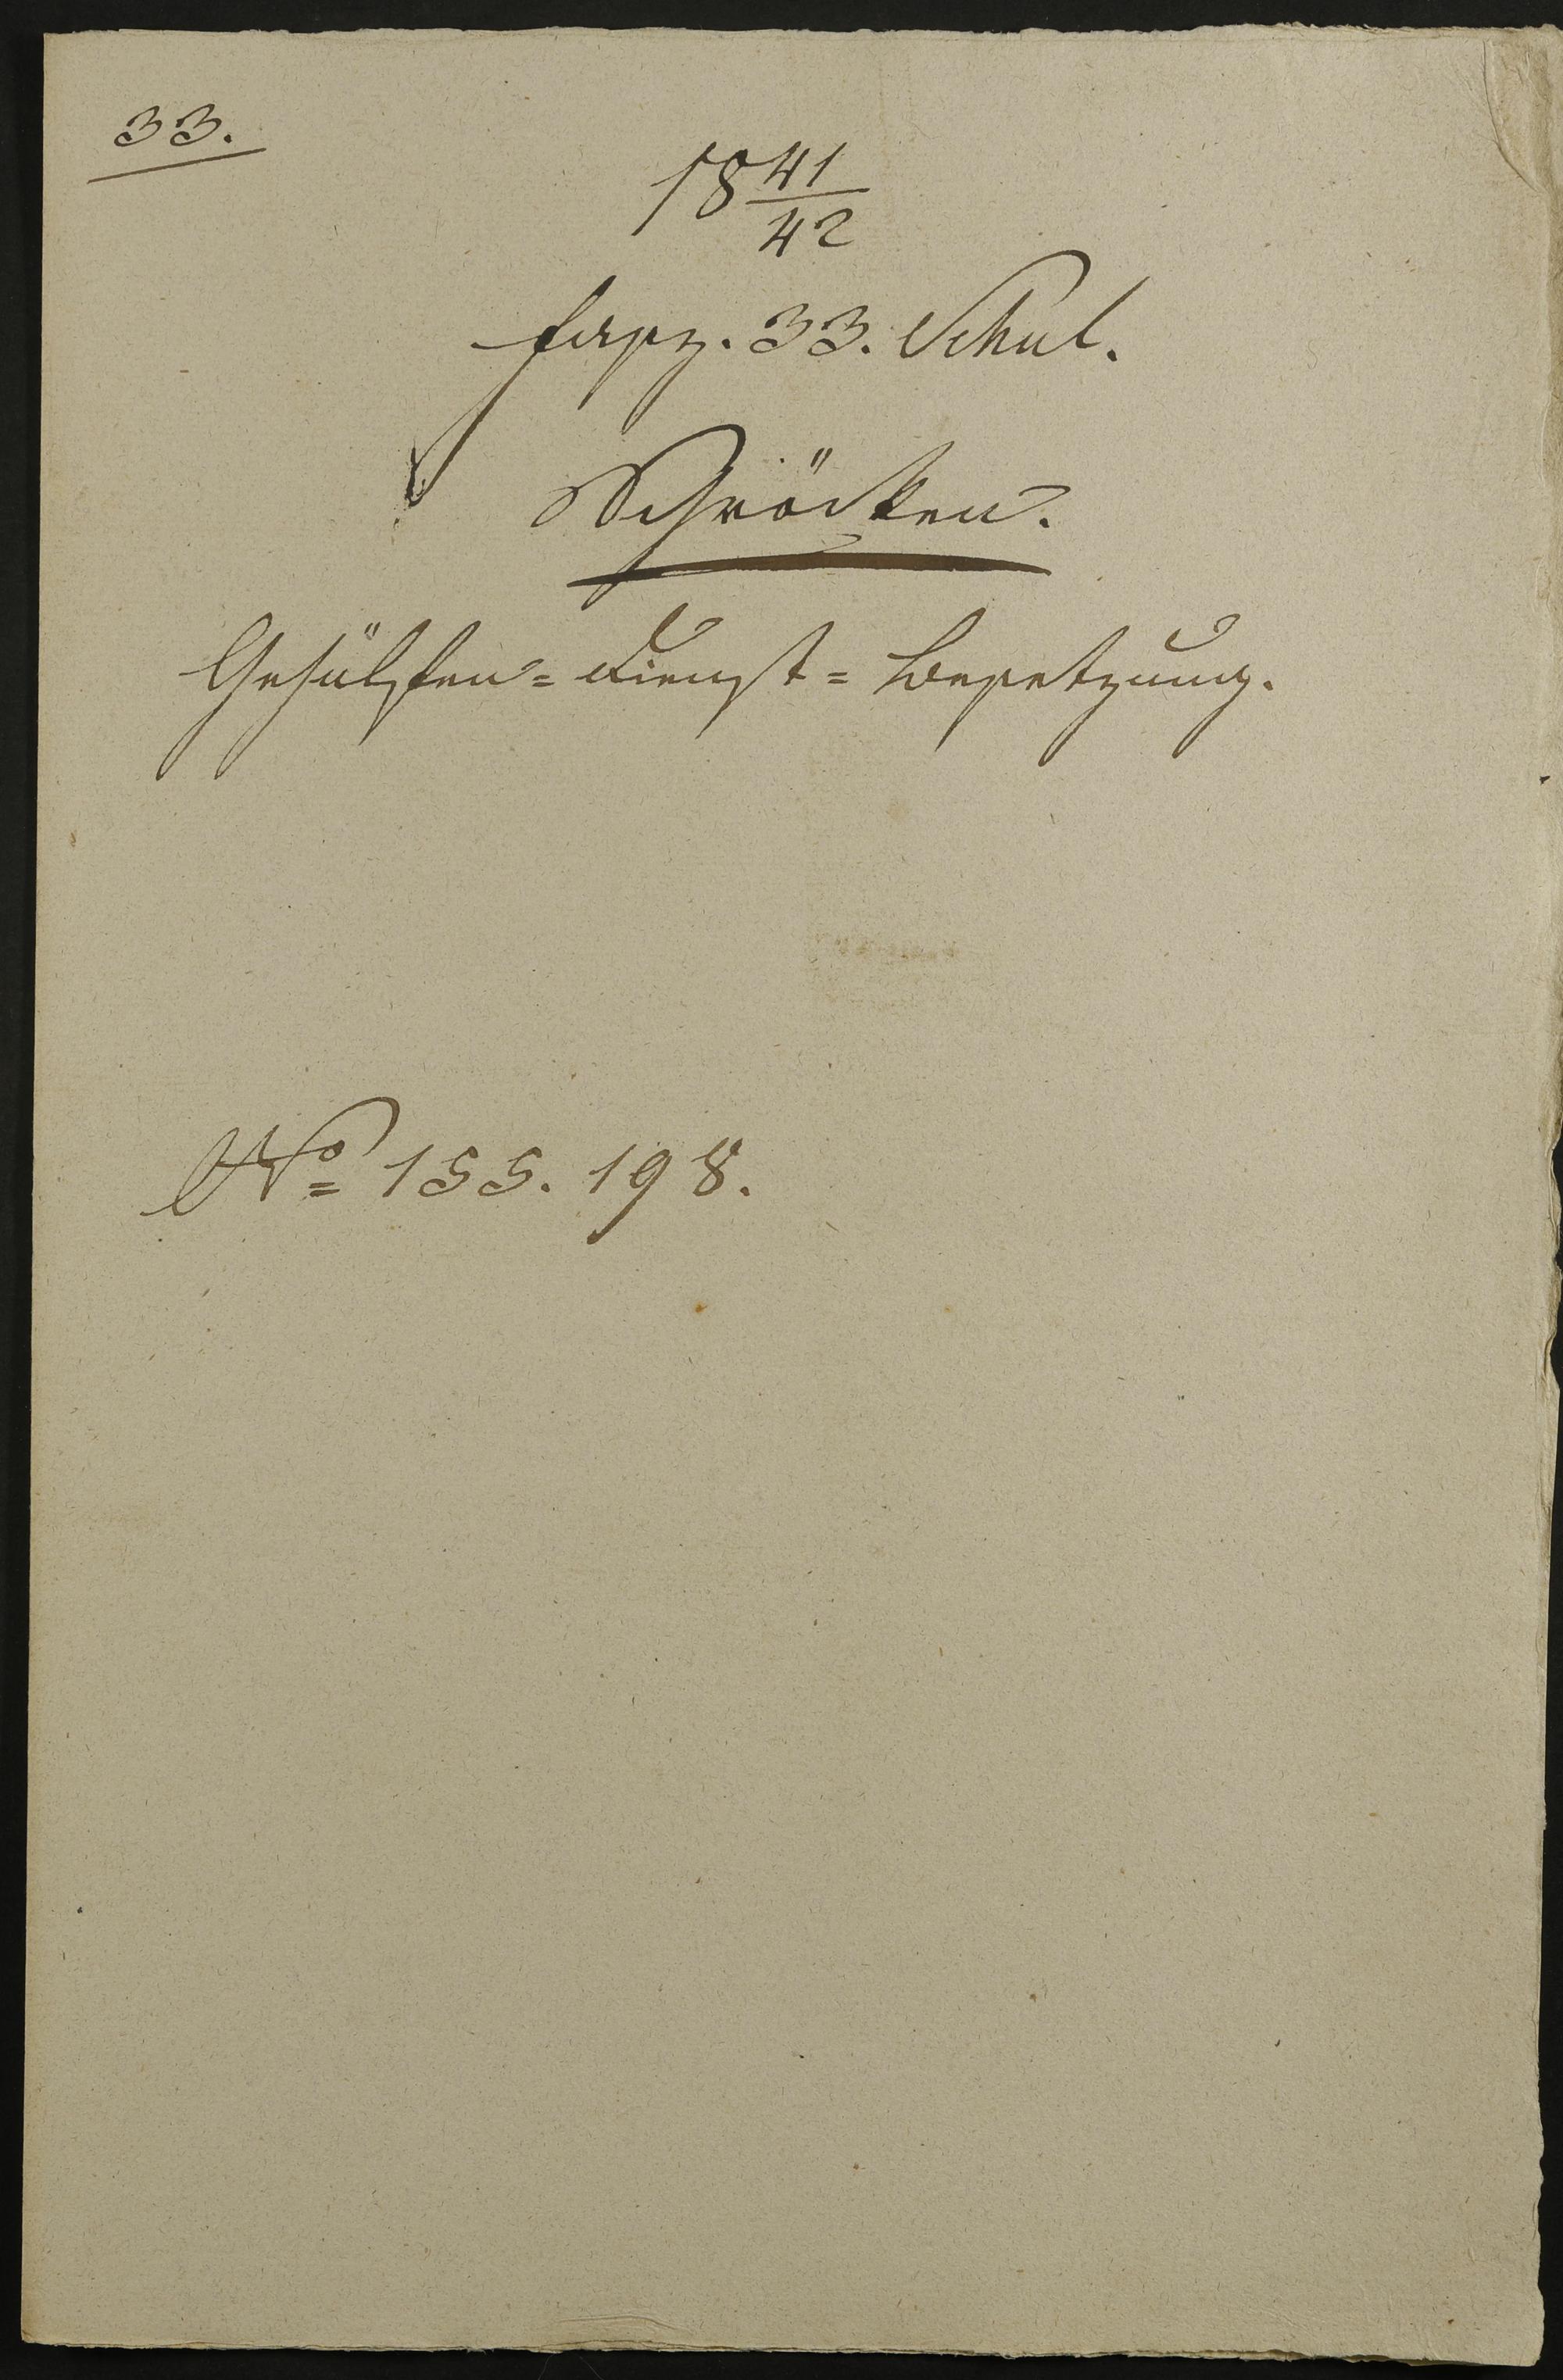 33.
18 41/42
fasz. 33. Schul.
Schröcken.
Gehülfen=dienst=besetzung.
No 155. 198.